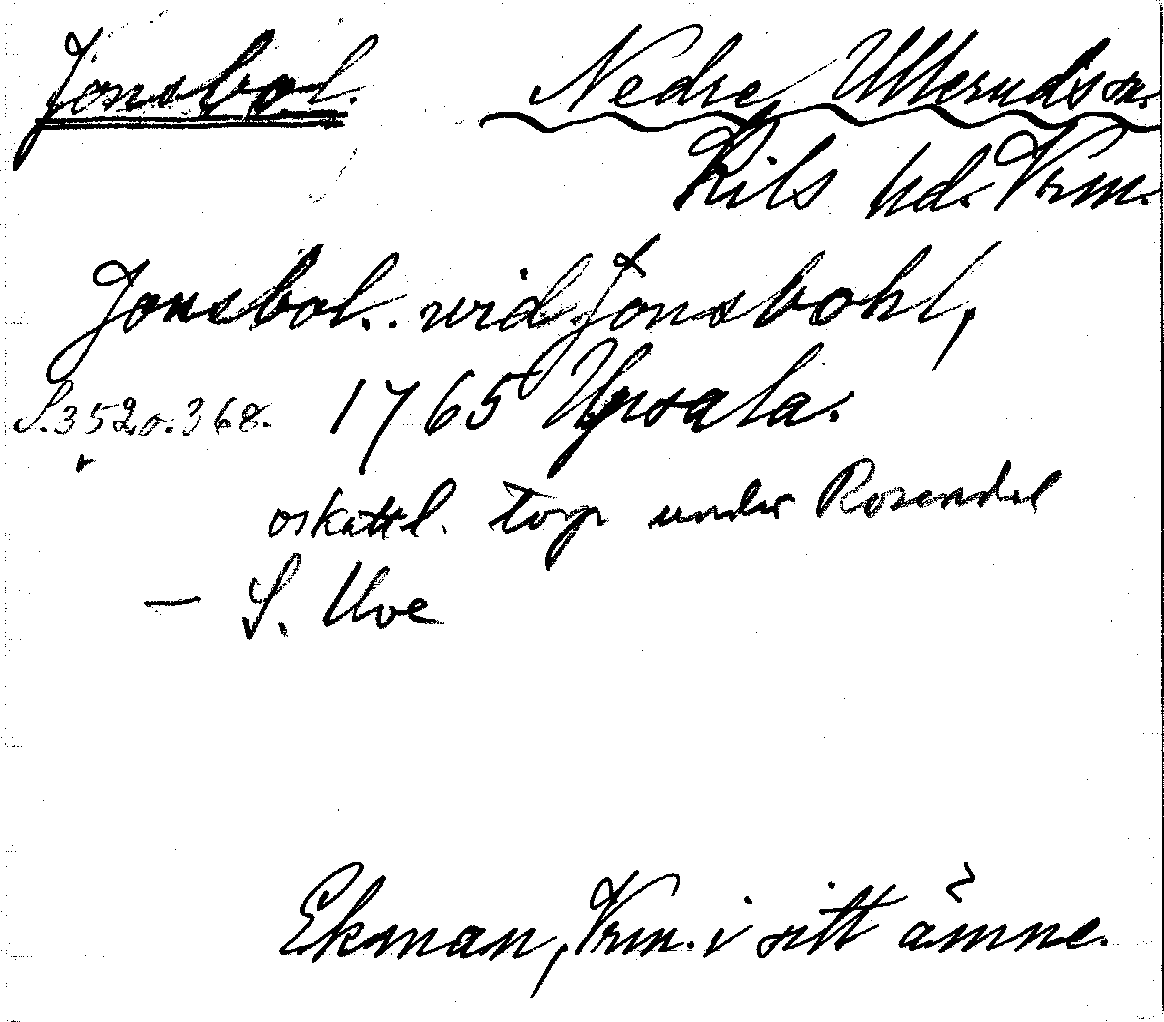 Jonsbol. Nedre Ulleruds sn.
Kils hd. Vrm.
Jonsbol.. vid Jonsbohl,
S. 352 o. 368. 1765 Upsala.
oskattl. torp under Rosendal
— S. Ulve
Ekman, Vrm. i sitt ämne.